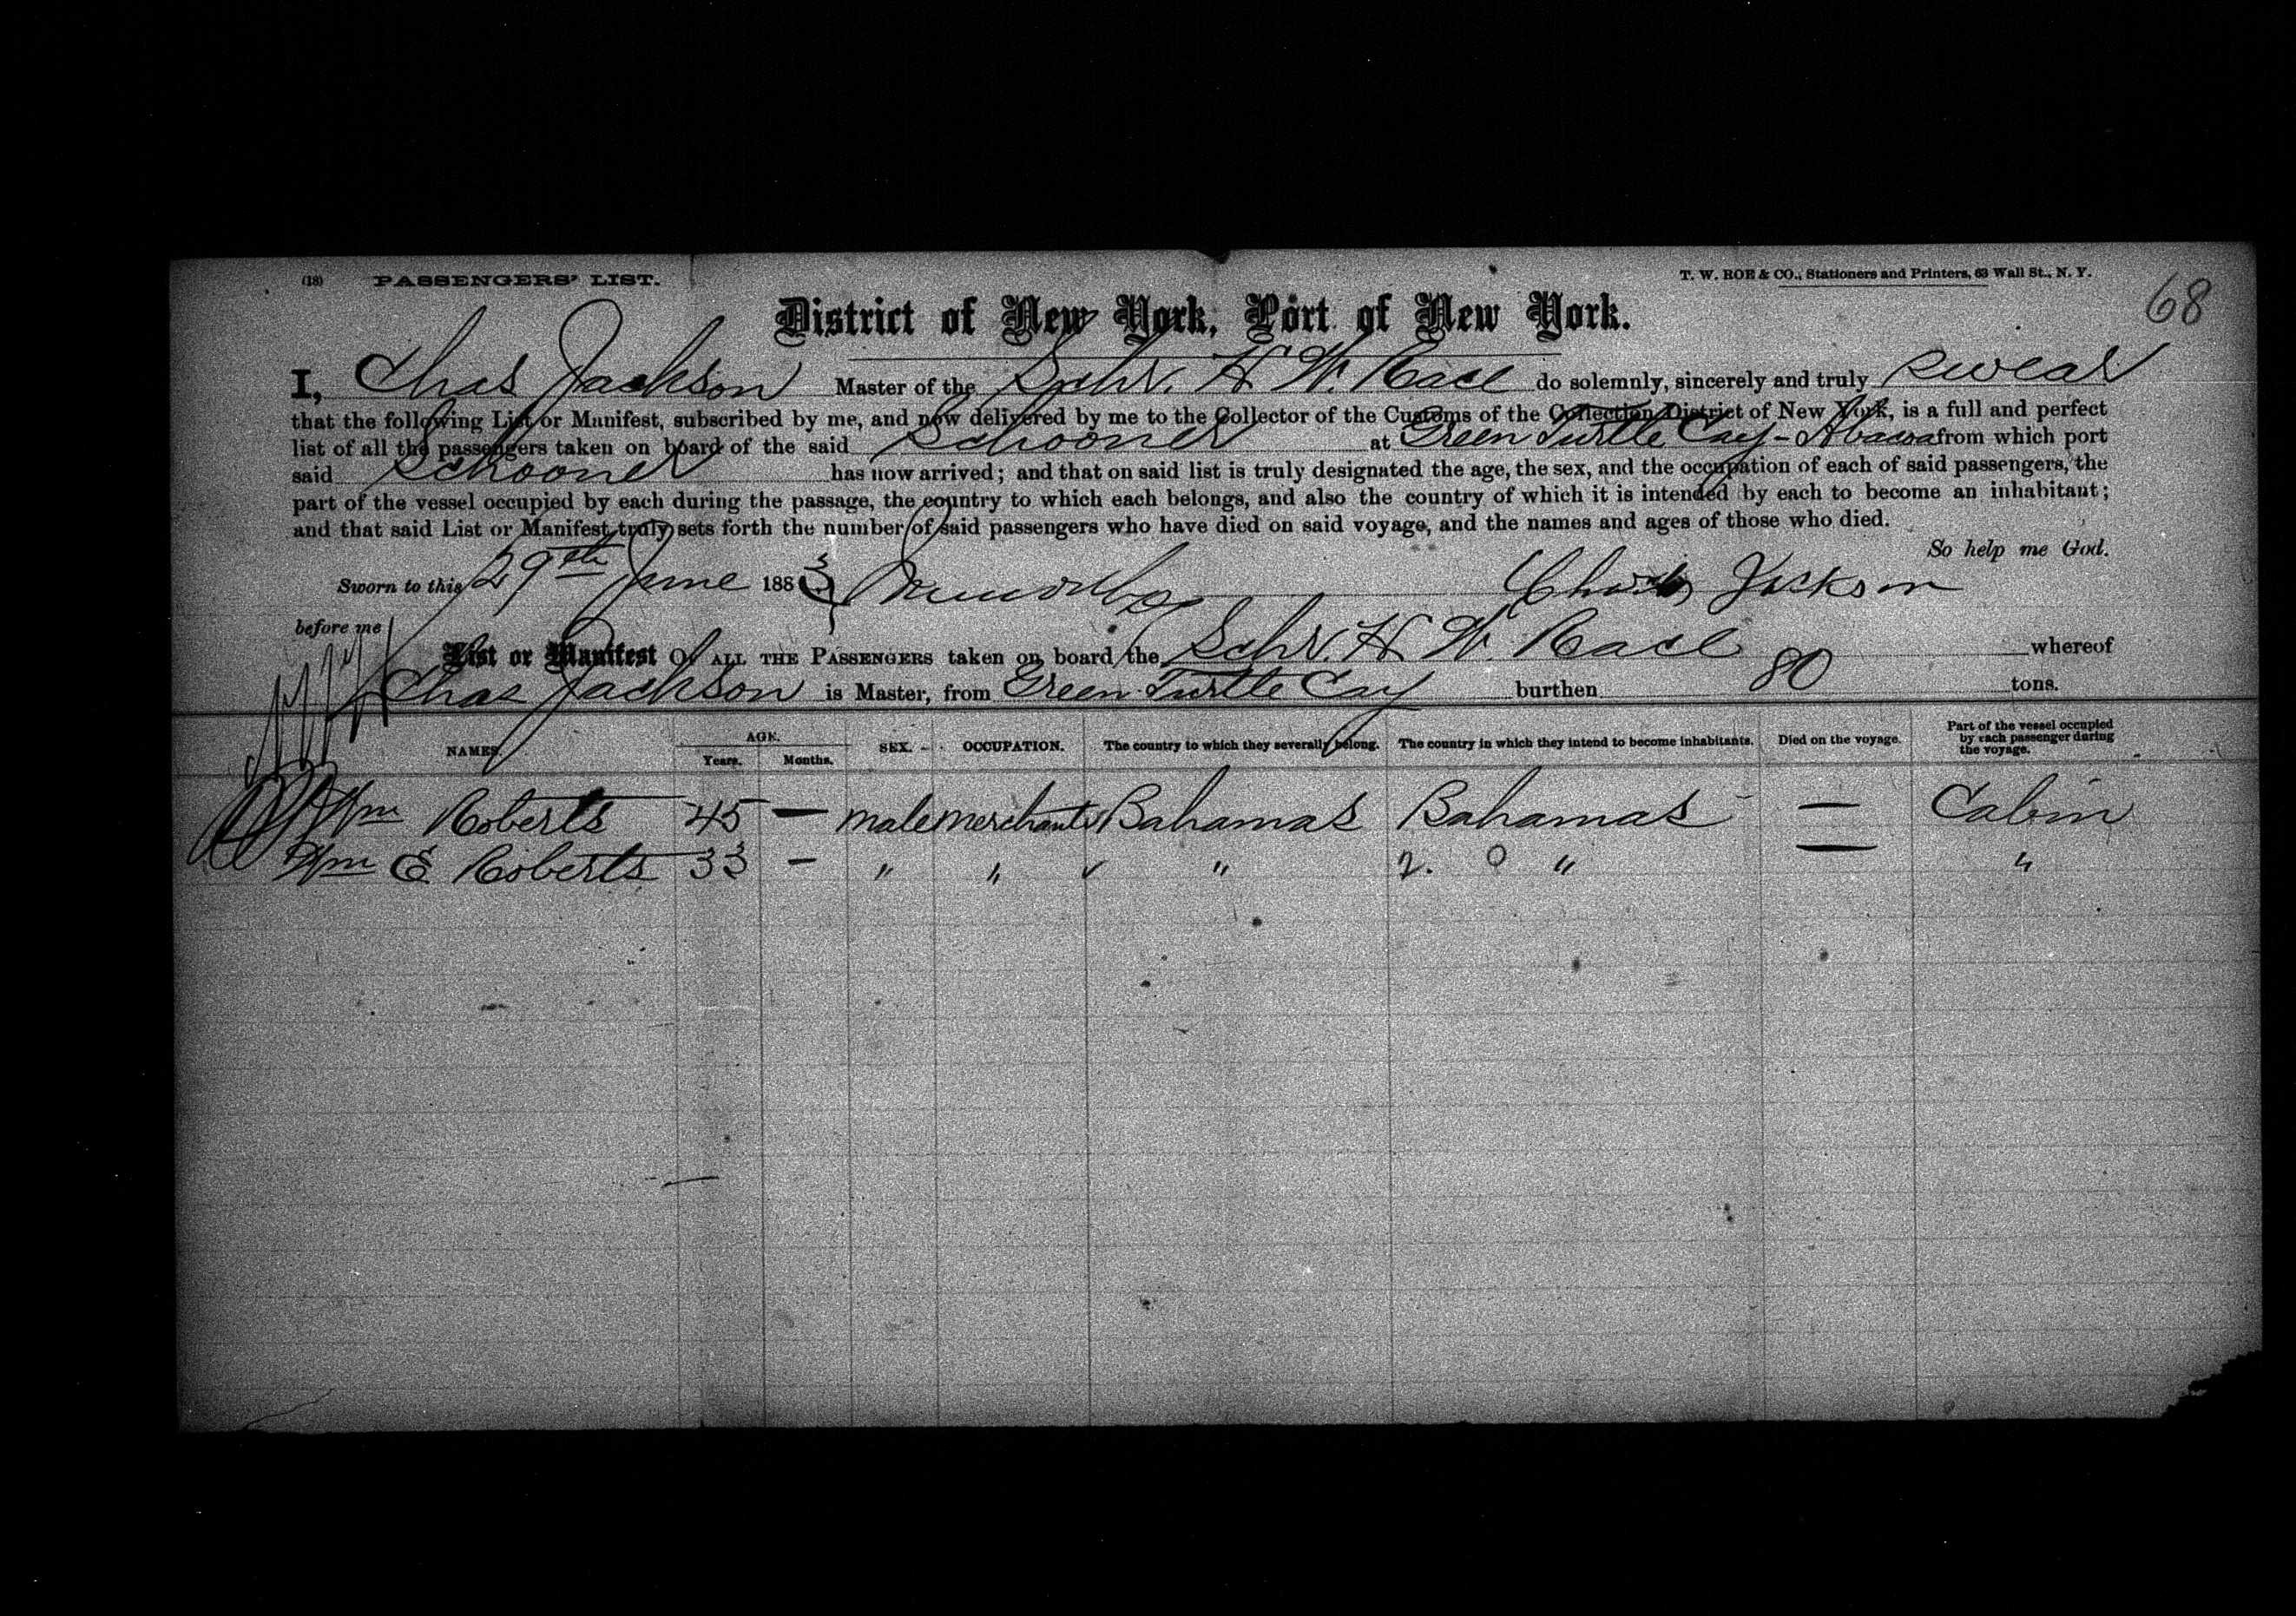 (18) PASSENGERS' LIST. T. W. ROE & CO., Stationers and Printers, 63 Wall St., N. Y.
68
District of New York, Port of New York.
I, Chas Jackson Master of the Schr. H W. Race do solemnly, sincerely and truly swear
that the following List or Manifest, subscribed by me, and now delivered by me to the Collector of the Customs of the Collection District of New York, is a full and perfect
list of all the passengers taken on board of the said Schooner at Green Turtle Cay - Abacoa from which port
said Schooner has now arrived; and that on said list is truly designated the age, the sex, and the occupation of each of said passengers, the
part of the vessel occupied by each during the passage, the country to which each belongs, and also the country of which it is intended by each to become an inhabitant;
and that said List or Manifest truly sets forth the number of said passengers who have died on said voyage, and the names and ages of those who died.
So help me God.
Sworn to this 29th June 1883 Jackson
before me
List or Manifest OF ALL THE PASSENGERS taken on board the Schr. H W. Race whereof
Chas Jackson is Master, from Green Turtle Cay burthen 80 tons.
NAMES. AGE. Years. Months. SEX. OCCUPATION. The country to which they severally belong. The country in which they intend to become inhabitants. Died on the voyage. Part of the vessel occupied by each passenger during the voyage.
Wm Roberts 45 — male merchants Bahamas Bahamas — Cabin
Wm E Roberts 33 — " " ✓ " 2. 0 " — "